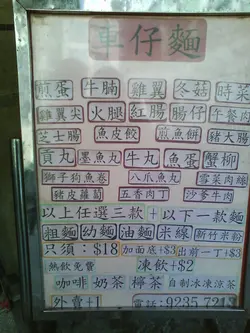 車仔麵
煎蛋 牛腩 雞翼 冬菇 時菜
雞翼尖 火腿 紅腸 腸仔 午餐肉
芝士腸 魚皮餃 煎魚餅 豬大腸
貢丸 墨魚丸 牛丸 魚蛋 蟹柳
獅子狗魚卷 八爪魚丸 雪菜肉絲
豬皮蘿蔔 五香肉丁 沙爹牛肉
以上任選三款 + 以下一款麵
粗麵 幼麵 油麵 米線 新竹米粉
只須：$18 加面底+$3 出前一丁+$3
熱飲免費 凍飲+$2
咖啡 奶茶 檸茶 自制冰凍涼茶
外賣+1 電話：9235 7213